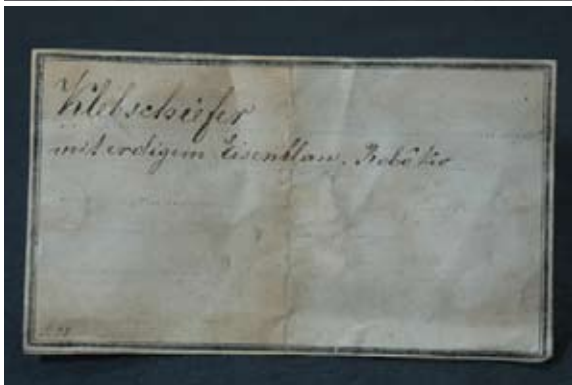 Klebschiefer
mit erdigem Eisenblau.